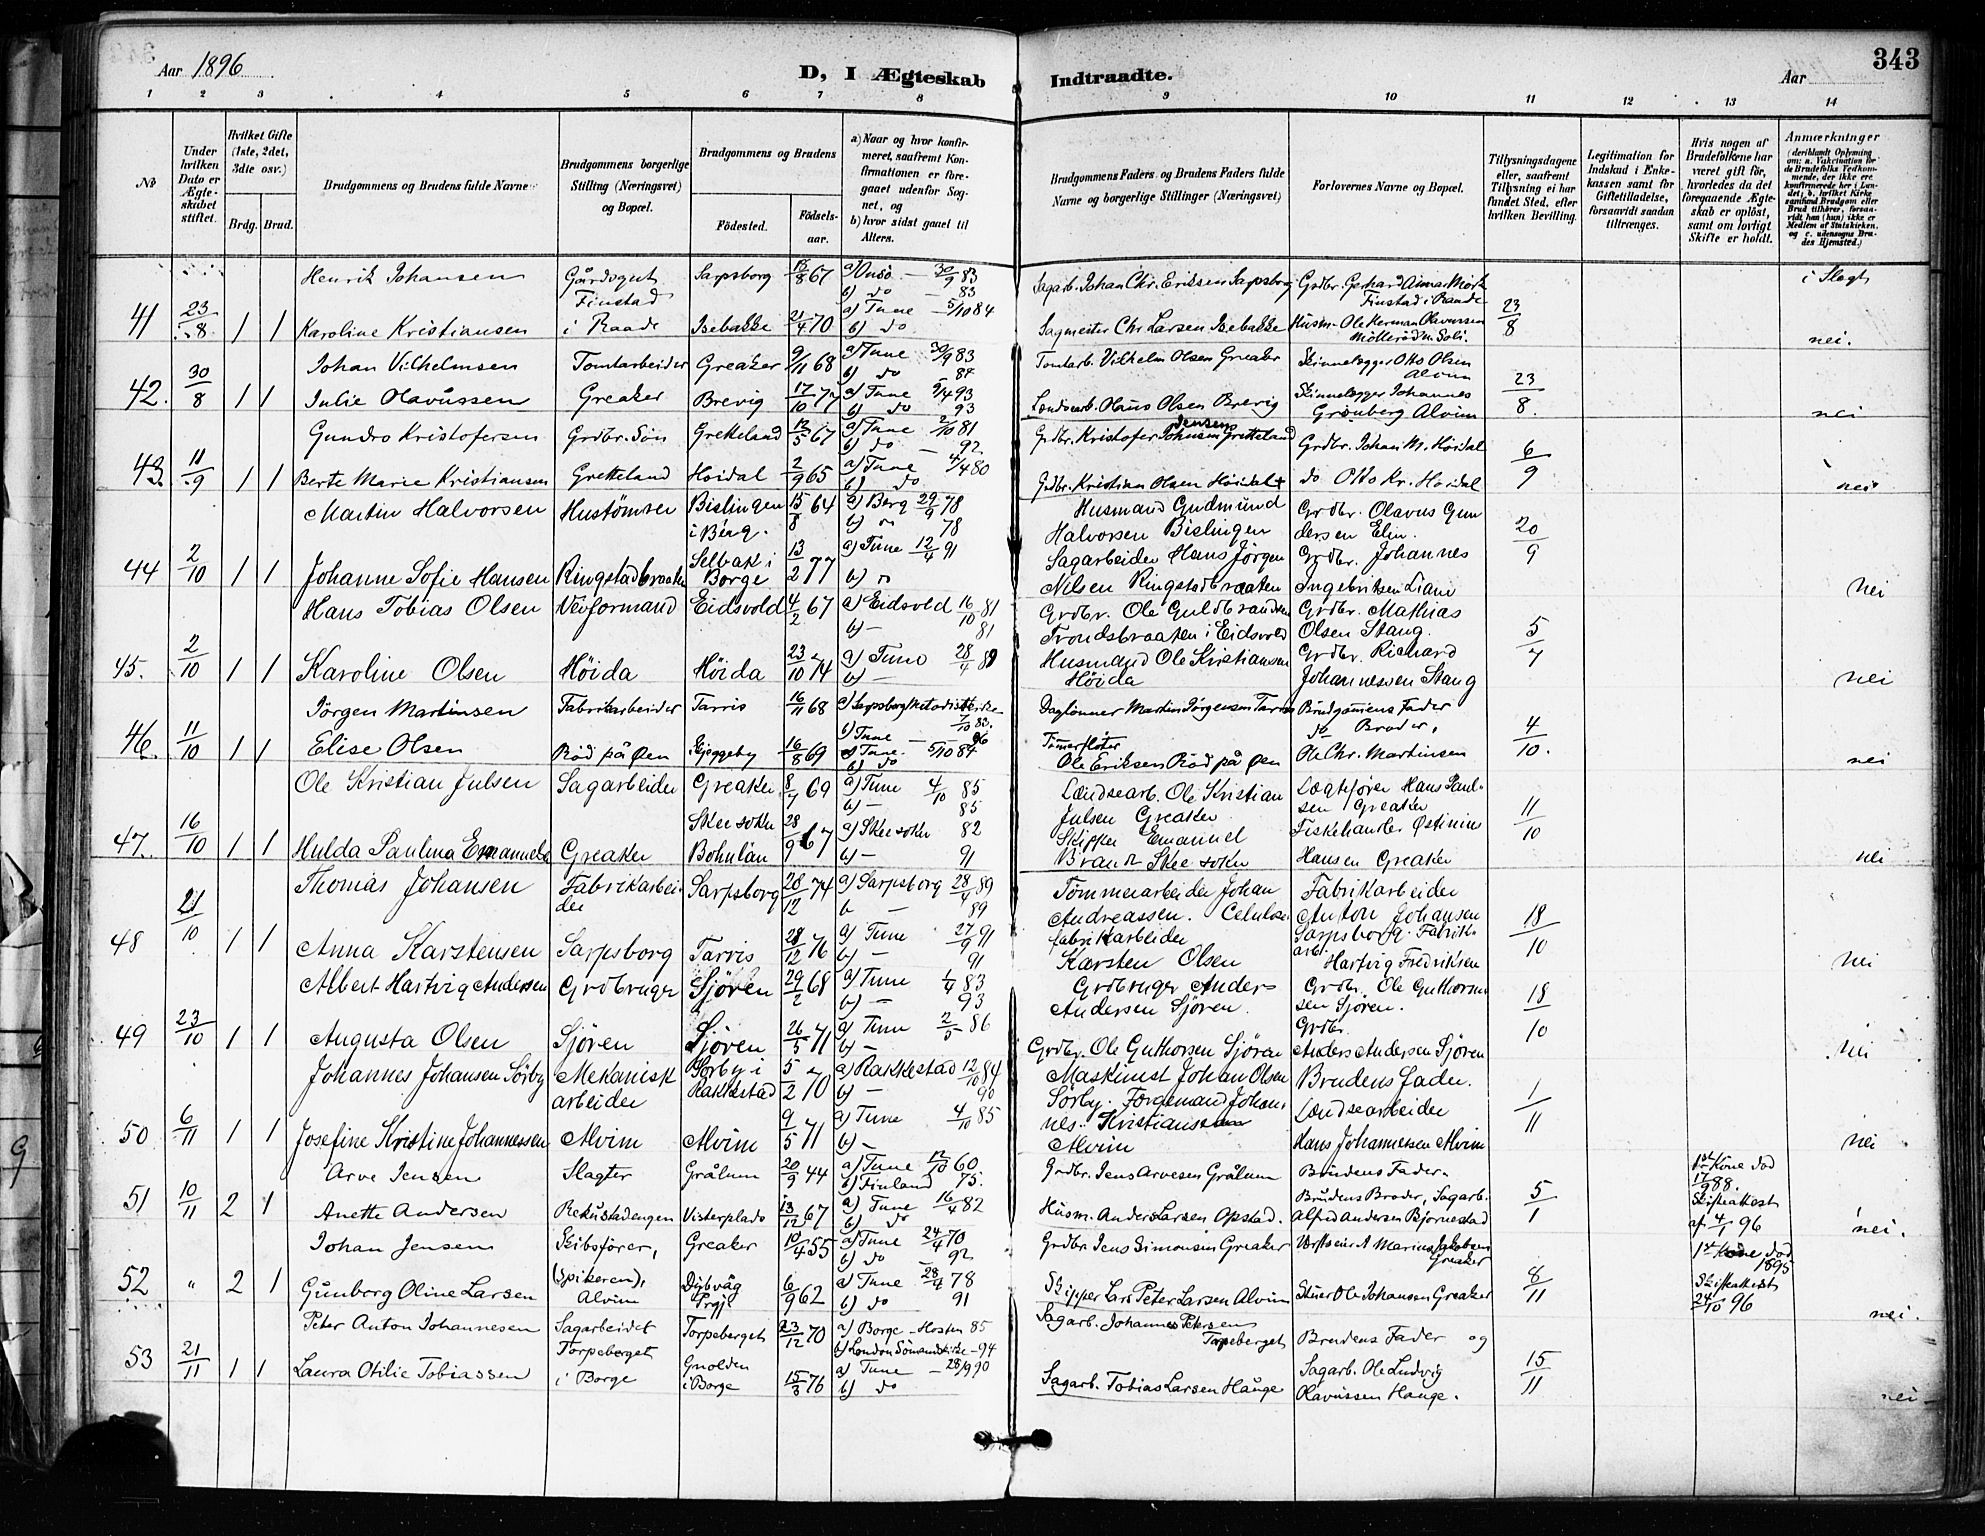 343
Aar 1896
D, I Ægteskab Indtraadte.
Aar
1 2 3 4 5 6 7 8 9 10 11 12 13 14
No
Under hvilken Dato er Ægteskabet stiftet.
Hvilket Gifte (1ste, 2det, 3die osv.)
Brdg. Brud.
Brudgommens og Brudens fulde Navne
Brudgommens borgerlige Stilling (Næringsvei) og Bopæl.
Brudgommens og Brudens
Födested.
Födselsaar.
a) Naar og hvor konfirmeret, saafremt Konfirmationen er foregaaet udenfor Sognet, og
b) hvor sidst gaaet til Alters.
Brudgommens Faders og Brudens Faders fulde Navne og borgerlige Stillinger (Næringsvei)
Forlovernes Navne og Bopæl.
Tillysningsdagene eller, saafremt Tillysning ei har fundet Sted, efter hvilken Bevilling.
Legitimation for Indskud i Enkekassen samt for Giftetilladelse, forsaavidt saadan tiltrænges.
Hvis nogen af Brudefolkene har været gift før, hvorledes da det foregaaende Ægteskab er oplöst, samt om lovligt Skifte er holdt.
Anmærkninger (deriblandt Oplysning om: a. Vakcination for de Brudefolks Vedkommende, der ikke ere konfirmerede her i Landet; b. hvilket Kirkesamfund Brudgom eller Brud tilhörer, forsaavidt han (hun) ikke er Medlem af Statskirken, og c. udensogns Brudes Hjemsted.)
Henrik Johansen Gårdsgut Sarpsborg 67 a) Onsö 30/9 83 Sagarb. Johan Chr. Eriksen Sarpsborg Grdbr. Gerhard Mørk i Slegt
Finstad b) do 83 Finstad i Raade
41 23/8 1 1 Karoline Kristiansen i Raade Isebakke 21/4 70 a) Tune 5/10 84 Sagmester Chr. Larsen Isebakke Husm. Ole Herman Olavessen 23/8 nei.
b) do
Johan Vilhelmsen Tomtarbeider Greaker 9/11 68 a) Tune 30/9 83 Tomtarb. Vilhelm Olsen Greaker Skinnelægger Otto Olsen
b) do 84 Alvim
42. 30/8 1 1 Julie Olavussen Greaker Brevig 17/10 77 a) Tune 9/4 93 Landsarb. Hans Olsen Brevig Skinnelægger Johannes 23/8. nei
b) do 93 Grønberg Alvim
Gundro Kristofersen Grdbr. Søn Gretteland 12/5 67 a) Tune 2/10 81 Grdbr. Kristofer Jensen Gretteland Grdbr. Johan M. Höidal
b) do 92
43. 11/9 1 1 Berte Marie Kristiansen Gretteland Höidal 2/9 65 a) Tune 4/4 80 Grdbr. Kristian Olsen Höidal + do Otto Kr. Höidal 6/9 nei
b) do
Martin Halvorsen Hustømrer Bislingen 15/8 64 a) Berg 29/9 78 Husmand Gudmund Grdbr. Olavus Gun
i Berg. b) " 78 Halvorsen Bislingen dersen Elin.
44 2/10 1 1 Johanne Sofie Hansen Ringstadbraaten Selbak i Borge 13/2 77 a) Tune 12/4 91 Sagarbeider Hans Jörgen Grdbr. Johannes 20/9
b) " Nilsen Ringstadbraaten Ingebritsen Liane nei
Hans Tobias Olsen Veiformand Eidsvold 4/2 67 a) Eidsvold 16/10 81 Grdbr. Ole Guldbrandsen Grdbr. Mathias
b) — 81 Trondsbraaten i Eidsvold Olsen Stang.
45. 2/10 1 1 Karoline Olsen Höida Höida 23/10 74 a) Tune 28/4 89 Husmand Ole Kristiansen Grdbr. Richard 5/7
b) — Höida Johannessen Stang nei
Jörgen Martinsen Fabrikarbeider Tarris 16/11 68 a) Sarpsborg Metodistkirke Daglønner Martin Jörgensen Tarris Brudgommens Fader
7/10 83. b) Tune 96 do Broder,
46. 11/10 1 1 Elise Olsen Röd på Øen Skjeggeby 16/8 69 a) Tune. 5/10 84 Tömerfløter 4/10.
b) do Ole Eriksen Röd på Øen Ole Chr. Martinsen nei
Ole Kristian Julsen Sagarbeider Greaker 8/7 69 a) Tune 4/10 85 Landsearb. Ole Kristian Lægtefører Hans Paul-
b) — 85 Julsen Greaker sen Greaker
47. 16/10 1 1 Hulda Paulina Emanuels. Greaker Skee sokn Bohuslän 28/9 67 a) Skee sokn 82 Skipper Emanuel Fiskehandler Østinius 11/10
b) — 91 Brandt Skee sokn Hansen Greaker nei
Thomas Johansen Fabrikarbeider Sarpsborg 20/12 74 a) Sarpsborg 28/4 89 Tømmerarbeider Johan Fabrikarbeider
b — 89 Andreassen. Celulose Anton Johansen
48 21/10 1 1 Anna Karstensen Sarpsborg Tarris 28/12 76 a) Tune 27/9 91 fabrikarbeider Sarpsborg. Fabrik- 18/10
b) — 91 Karsten Olsen arb. Hartvig Fredriksen nei
Albert Hartvig Andersen Grdbruger Sjören 29/2 68 a) Tune 1/4 83 Grdbruger Anders Grdbr. Ole Guthorm-
b) — 93 Andersen Sjören. sen Sjören. 18/10
49 23/10 1 1 Augusta Olsen Sjören Sjören 26/5 71 a) Tune 2/5 86 Grdbr.
b) — Grdbr. Ole Guthorsen Sjören Anders Andersen Sjören nei
Johannes Johansen Sörby Mekanisk Sörby i 5/2 70 a) Rakkestad 12/10 84 Maskinist Johan Olsen Brudens Fader.
arbeider Rakkestad b) — 90 Sörby. Forgemand Johan- Landsearbeider
50 6/11 1 1 Josefine Kristine Johannessen Alvim Alvim 9/5 71 a) Tune 4/10 85 nes Kristiansen Hans Johannessen Alvim 1/11
b) — Alvim nei
Arve Jensen Slagter Grålum 20/9 44 a) Tune 12/10 60 Grdbr. Jens Arvesen Grålum Brudens Fader. 1ste Kone död
b) Finland 75. 17/9 88.
51 10/11 2 1 Anette Andersen Rekustadengen Visterplads 13/12 67 a) Tune 16/4 82 Husm. Anders Larsen Opstad. Brudens Broder, Sagarb. Alfred Andersen Bjornestad 5/1 Skifteattest af 4/7 96 nei.
b) do
Johan Jensen Skibsförer, Greaker 10/4 55 a) Tune 24/4 70 Grdbr. Jens Simonsen Greaker Marius Jakobsen Greaker 1ste Kone död
b) do 92 1895
52 " 2 1 Gunborg Oline Larsen (Spikeren), Alvim Dybvåg 6/9 62 a) Tune 28/4 78 Skipper Lars Peter Larsen Alvim Stuer Ole Johansen Greaker 8/11 Skifteattest 24/10 96 nei.
b) do 91
Peter Anton Johannesen Sagarbeider Torpeberget 23/12 70 a) Borge Hosten 85 Sagarb. Johannes Petersen
Torpeberget b) London Sömandskirke 94 Torpeberget Brudens Fader og
53 21/11 1 1 Laura Otilie Tobiassen i Borge Gnolden i Borge 15/3 76 a) Tune 28/9 90 Sagarb. Tobias Larsen Hauge Sagarb. Ole Ludvig 15/11
b) do Olavussen Hauge. nei